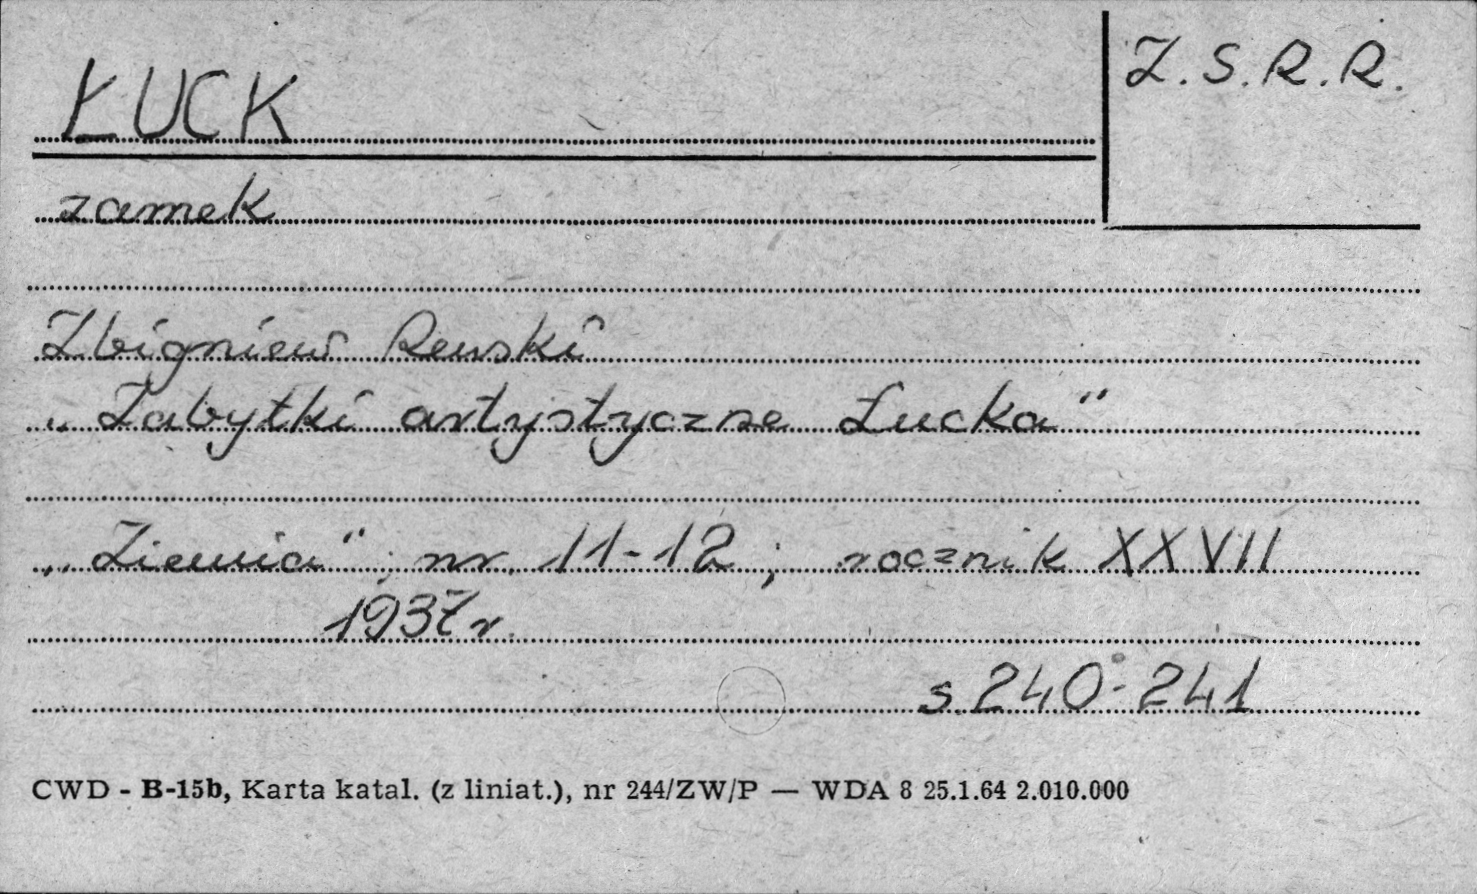 ŁUCK
Z.S.R.R.
zamek
Zbigniew Rewski
„Zabytki artystyczne Łucka”
„Ziemia”; nr. 11-12; rocznik XXVII
1937r.
s. 240-241
CWD - B-15b, Karta katal. (z liniat.), nr 244/ZW/P — WDA 8 25.1.64 2.010.000